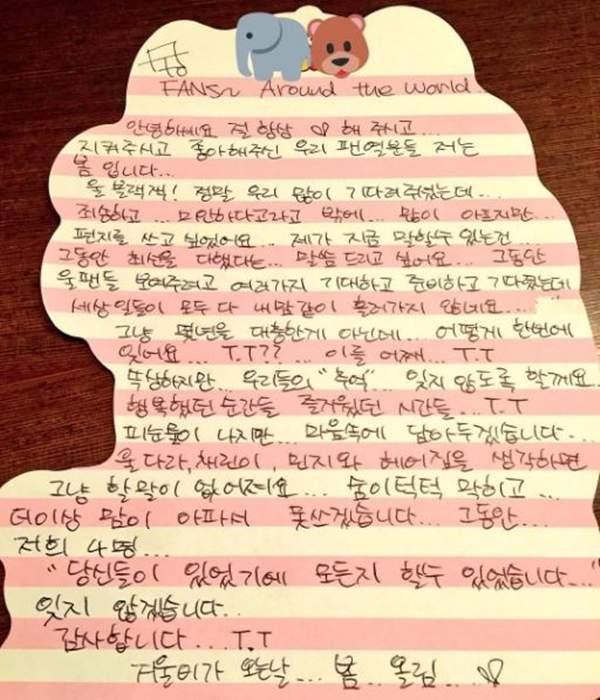 FANS~ Around the World
안녕하세요 절 항상 ♡ 해 주시고...
지켜주시고 좋아해주신 우리 팬여러분들 저는
봄 입니다...
울 블랙잭! 정말 우리 많이 기다려주셨는데...
죄송하고... 미안하다고라고 밖에... 많이 아프지만...
편지를 쓰고 싶었어요... 제가 지금 말할수 있는건...
그동안 최선을 다했다는... 말씀 드리고 싶어요... 그동안
울팬들 보여주려고 여러가지 기대하고 준비하고 기다렸는데
세상일들이 모두 다 내맘같이 흘러가지 않네요...
그냥 몇년을 대충한게 아닌데... 어떻게 한번에
잊어요... T.T?? ... 이를 어째... T.T
속상하지만... 우리들의 "추억"... 잊지 않도록 할께요
행복했던 순간들 즐거웠던 시간들... T.T
피눈물이 나지만... 마음속에 담아두겠습니다...
울 다라, 채린이, 민지와 헤어짐을 생각하면
그냥 할말이 없어져요... 숨이턱턱 막히고...
더이상 맘이 아파서 못쓰겠습니다... 그동안...
저희 4명...
"당신들이 있었기에 모든지 할수 있었습니다..."
잊지 않겠습니다..
감사합니다... T.T
겨울비가 오는날... 봄 올림... ♡